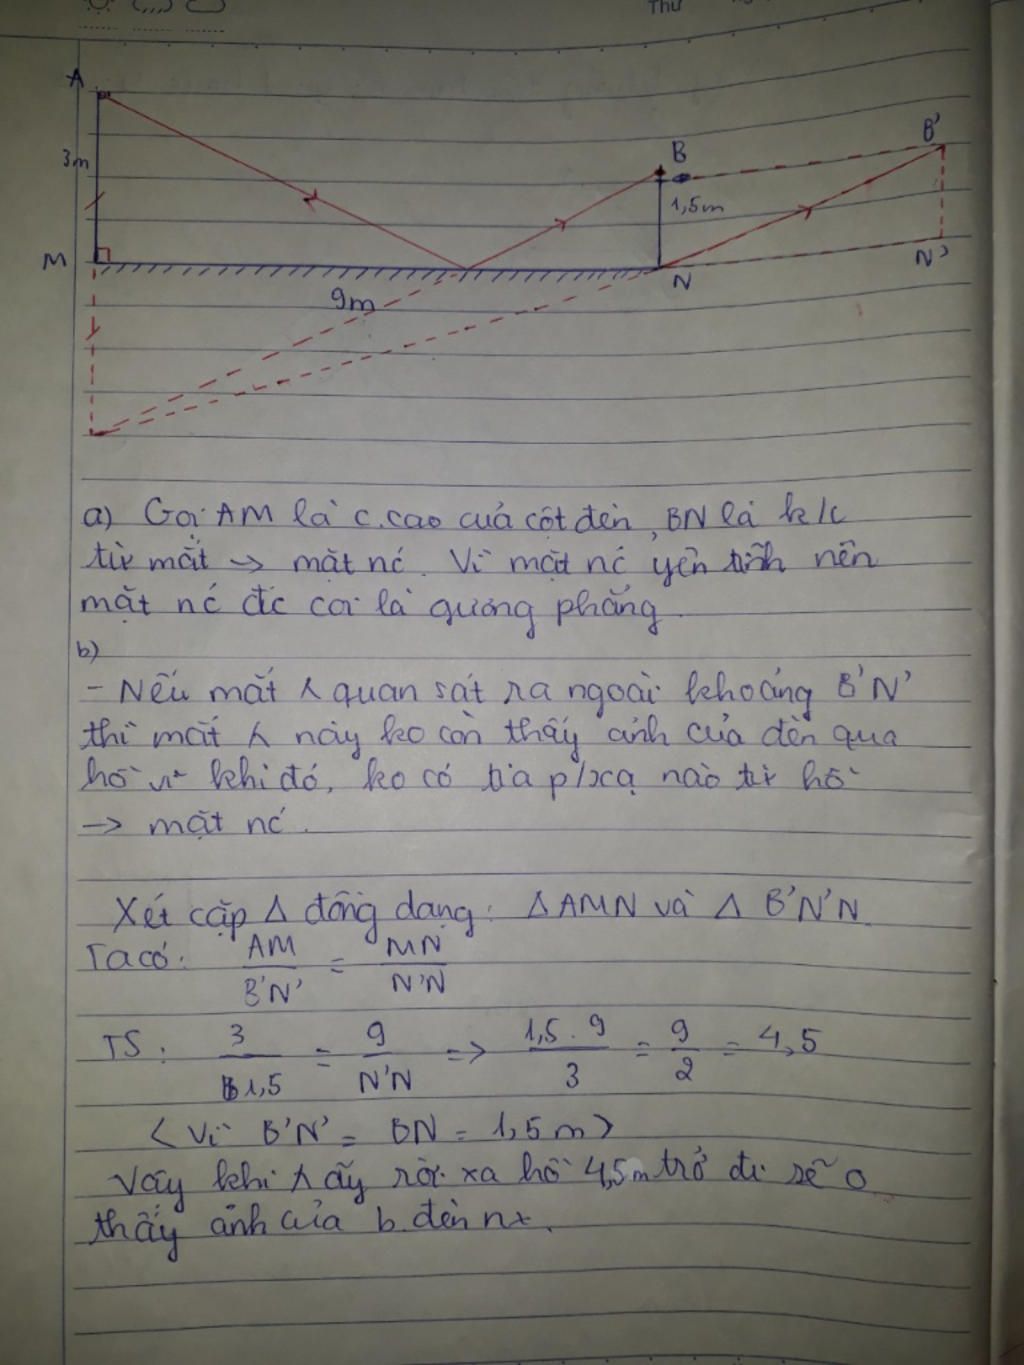 Thứ
A
3m
B
B'
1,5m
M
N
N'
9m
a) Gọi AM là c.cao của cột đèn, BN là k/c
từ mắt → mặt nc. Vì mặt nc yên tĩnh nên
mặt nc đc coi là gương phẳng.
b)
- Nếu mắt quan sát ra ngoài khoảng B'N'
thì mắt này ko còn thấy ảnh của đèn qua
hồ vì khi đó, ko có tia p/xạ nào từ hồ
→ mặt nc.
Xét cặp Δ đồng dạng: ΔAMN và Δ B'N'N.
Ta có: AM/B'N' = MN/N'N
TS: 3/1,5 = 9/N'N => 1,5.9/3 = 9/2 = 4,5
<Vì B'N' = BN = 1,5m>
Vậy khi ấy rời xa hồ 4,5m trở đi sẽ o
thấy ảnh của b.đèn nx.